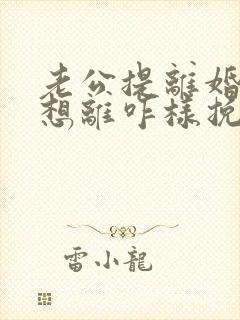 老公提離婚
想離咋樣挽
雷小龍